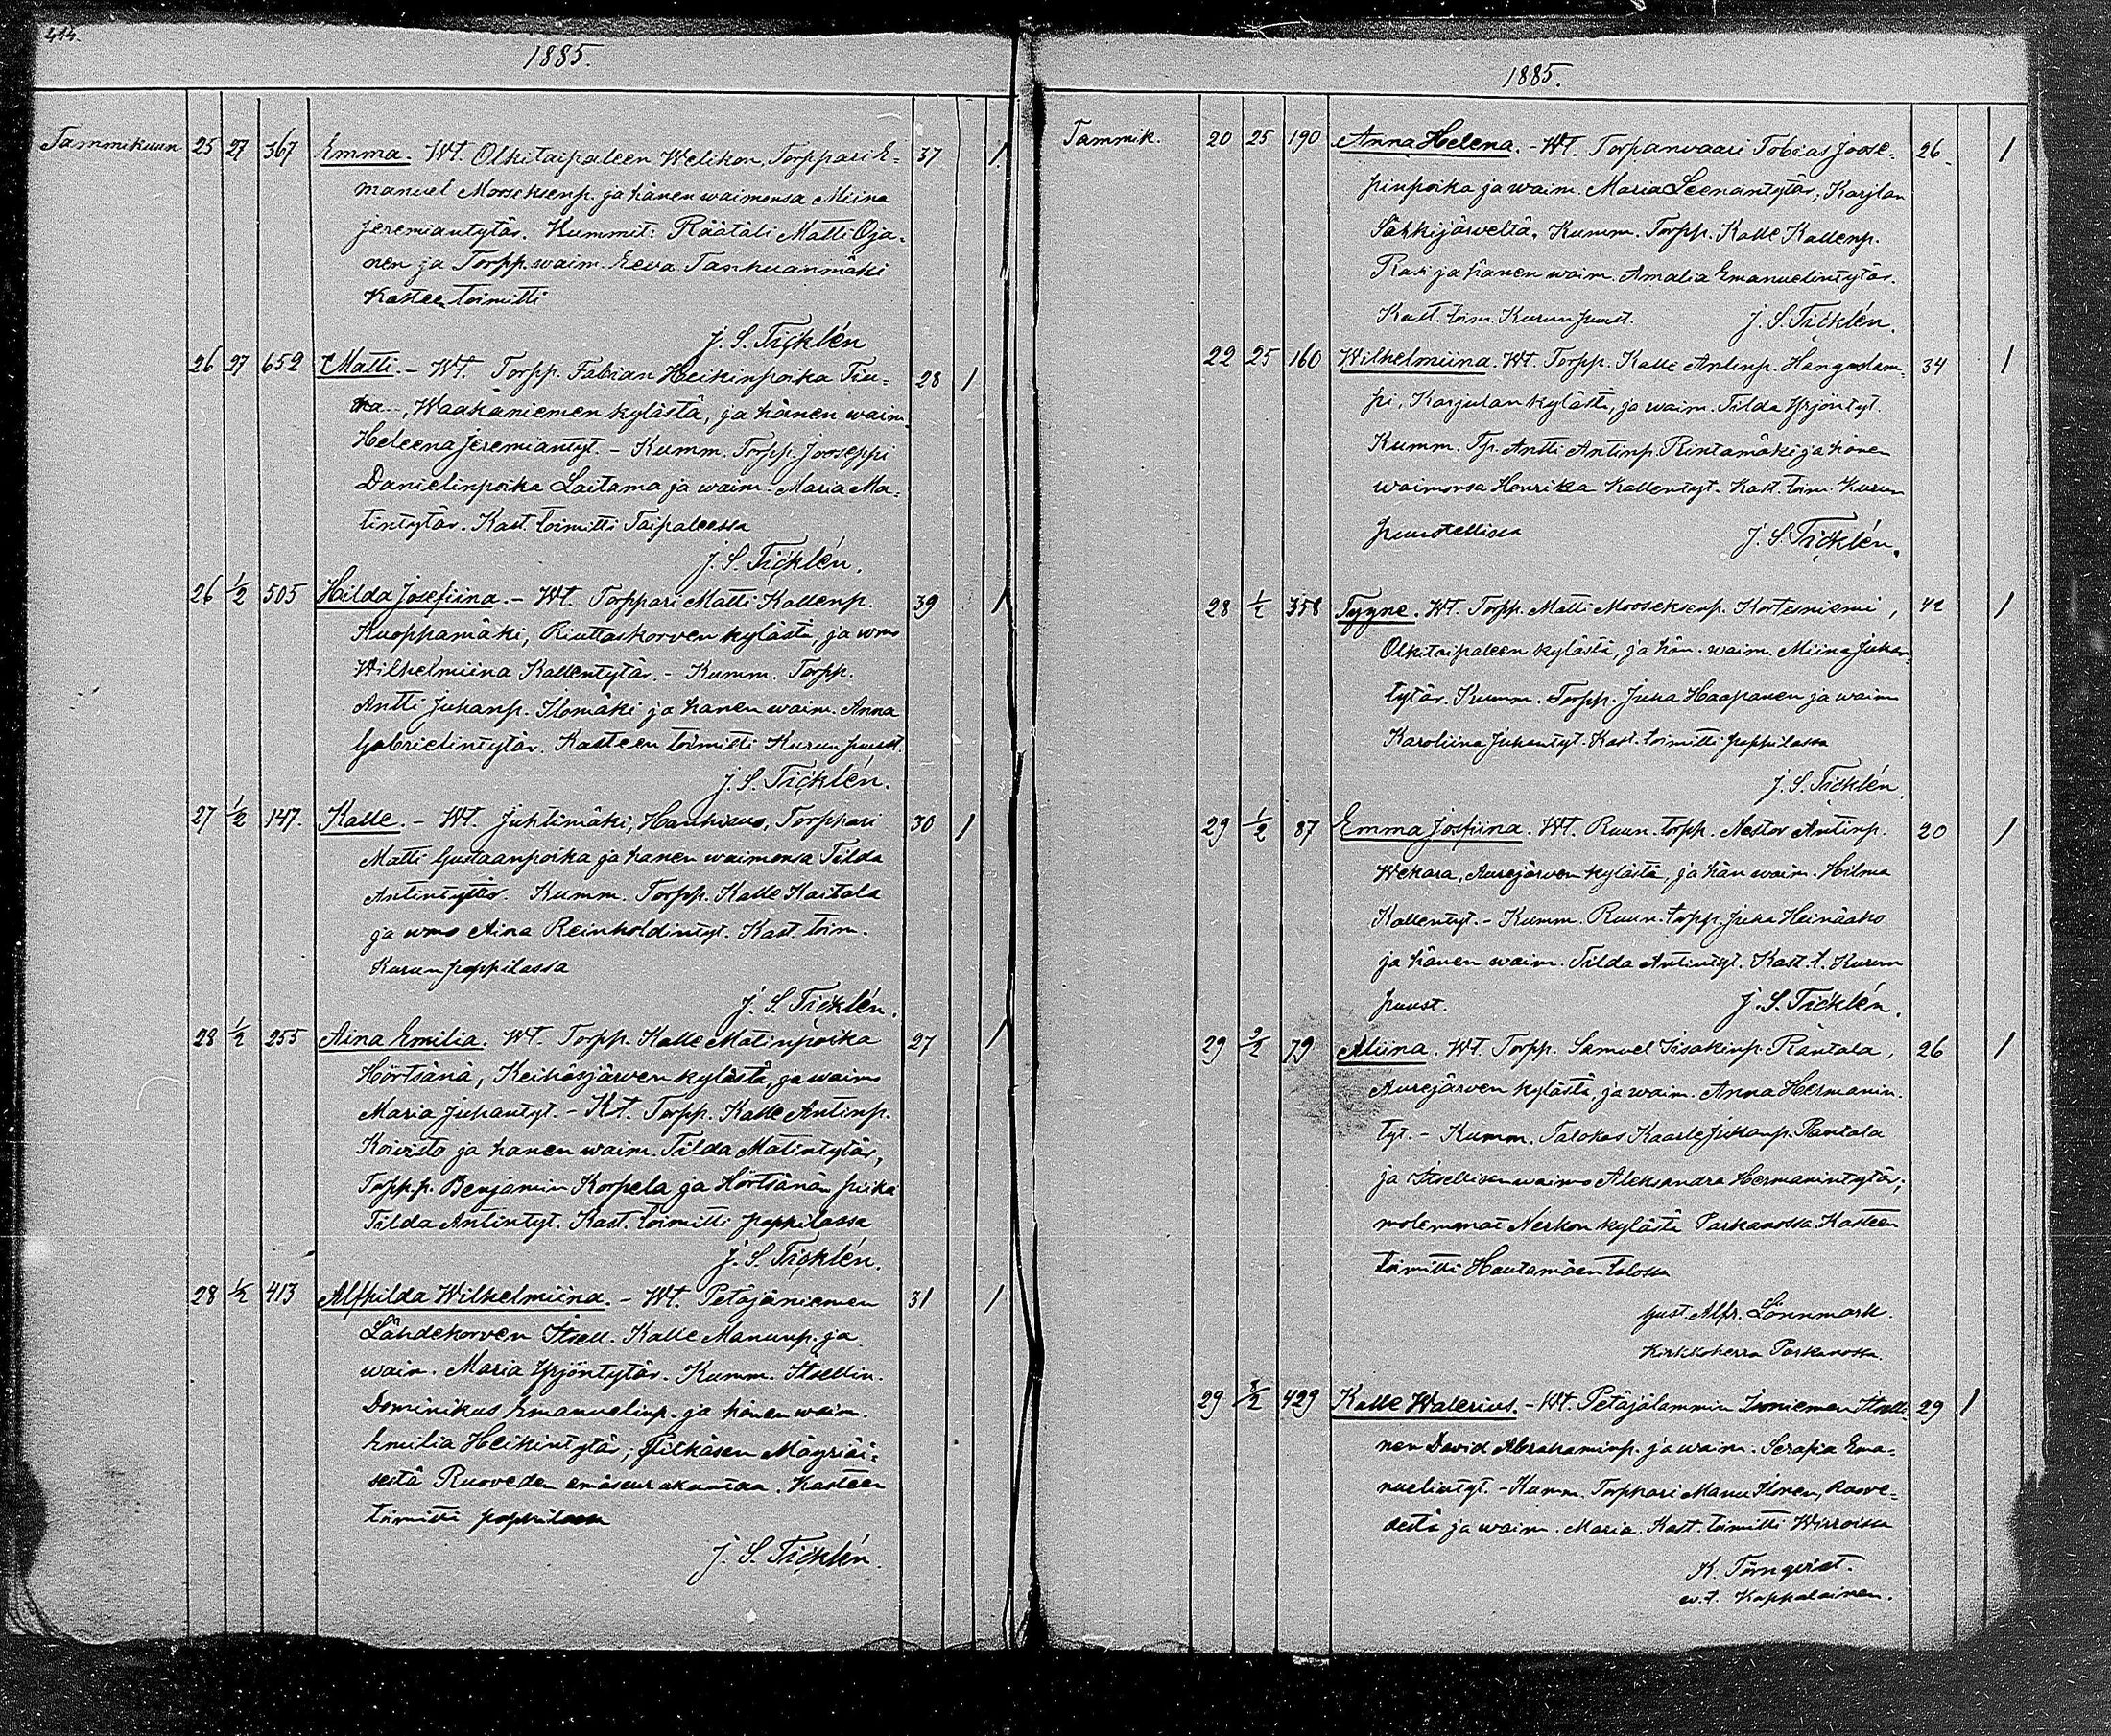 414.
1885.
Tammikuun 25 27 367 Emma. Wt. Olkitaipaleen Welikon Torppari E- 37 1
manuel Mooseksenp. ja hänen waimonsa Miina
Jeremiantytär. Kummit: Räätäli Matti Oja-
nen ja Torpp. waim. Eeva Tanhuanmäki
Kasteen toimitti
J. S. Ticklén
26 27 652 Matti. - Wt. Torpp. Fabian Heikinpoika Tiu- 28 1
ra, Waakaniemen kylästä, ja hänen waim.
Heleena Jeremiantyt. - Kumm. Torpp. Jooseppi
Danielinpoika Laitama ja waim. Maria Ma-
tintytär. Kast. toimitti Taipaleessa
J. S. Ticklén.
26 1/2 505 Hilda Josefiina. - Wt. Torppari Matti Kallenp. 39 1
Kuoppamäki, Riuttaskorven kylästä, ja wmo
Wilhelmiina Kallentytär. - Kumm. Torpp.
Antti Juhanp. Ilomäki ja hänen waim. Anna
Gabrielintytär. Kasteen toimitti Kurun puust.
J. S. Ticklén.
27 1/2 147. Kalle. - Wt. Juhtimäki, Hauhuus, Torppari 30 1
Matti Gustaanpoika ja hänen waimonsa Tilda
Antintytär. Kumm. Torpp. Kalle Kaitala
ja wmo Aina Reinholdintyt. Kast. toim.
Kurun pappilassa
J. S. Ticklén.
28 1/2 255 Aina Emilia. Wt. Torpp. Kalle Matinpoika 27 1
Hörtsänä, Keihäsjärven kylästä, ja waimo
Maria Juhantyt. - Kt. Torpp. Kalle Antinp.
Koivisto ja hänen waim. Tilda Matintytär,
Torpp. p. Benjamin Korpela ja Hörtsänän piika
Tilda Antintyt. Kast. toimitti pappilassa
J. S. Ticklén.
28 1/2 413 Alfhilda Wilhelmiina. - Wt. Petäjäniemen 31 1
Lähdekorven Itsell. Kalle Manunp. ja
waim. Maria Yrjöntytär. Kumm. Itsellin.
Dominikus Emanuelinp. ja hänen waim.
Emilia Heikintytär, Pitkäsen Mäyriäi-
sestä Ruoveden emäseurakuntaa. Kasteen
toimitti pappilassa
J. S. Ticklén.
1885.
Tammik. 20 25 190 Anna Helena. - Wt. Torpanvaari Tobias Joose- 26 1
pinpoika ja waim. Maria Leenantytär, Karjlan
Särkijärveltä. Kumm. Torpp. Kalle Kallenp.
Rasi ja hänen waim. Amalia Emanuelintytär.
Kast. toim. Kurun puust. J. S. Ticklén.
22 25 160 Wilhelmiina. Wt. Torpp. Kalle Antinp. Hangaslam- 34 1
pi, Karjulan kylästä, ja waim. Tilda Yrjöntyt.
Kumm. Tp. Antti Antinp. Rintamäki ja hänen
waimonsa Henrika Kallentyt. Kast. toim. Kurun
puustellissa J. S. Ticklén.
28 1/2 358 Tyyne. Wt. Torpp. Matti Mooseksenp. Kortesniemi, 42 1
Olkitaipaleen kylästä, ja hän. waim. Miina Juhan-
tytär. Kumm. Torpp. Juha Haapanen ja waim
Karoliina Juhantyt. Kast. toimitti pappilassa
J. S. Ticklén.
29 1/2 87 Emma Josfiina. Wt. Ruun. torpp. Nestor Antinp. 20 1
Wekara, Aurejärven kylästä, ja hän waim. Hilma
Kallentyt. - Kumm. Ruun. torpp. Juha Heinäaho
ja hänen waim. Tilda Antintyt. Kast. t. Kurun
puust. J. S. Ticklén.
29 9/2 79 Miina. Wt. Torpp. Samuel Iisakinp. Rantala, 26 1
Aurejärven kylästä, ja waim. Anna Hermanin-
tyt. - Kumm. Talokas Kaarle Juhanp. Rantala
ja Itsellisen waimo Aleksandra Hermanintytär,
molemmat Nerkon kylästä Parkanossa. Kasteen
toimitti Hautamäen talossa
Gust. Alfr. Lönnmark.
Kirkkoherra Parkanossa.
29 8/2 429 Kalle Walerius. - Wt. Petäjälammin Isoniemen Itselli- 29 1
nen David Abrahaminp. ja waim. Serafia Ema-
nuelintyt. - Kumm. Torppari Manu Ilonen, Ruove-
destä ja waim. Maria. Kast. toimitti Wirroissa
K. Törnqvist.
w.t. Kappalainen.